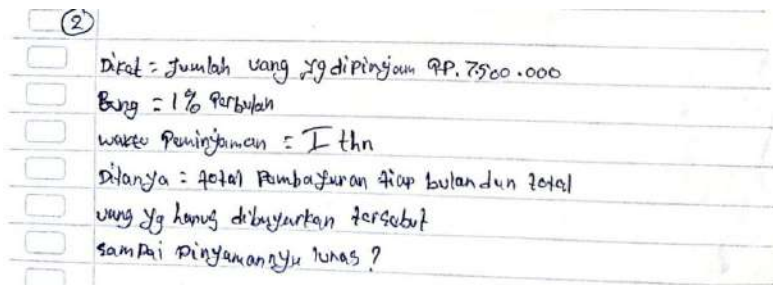 2
Diket = Jumlah uang yg dipinjam RP. 7.500.000
Bung = 1% Perbulan
waktu Peminjaman = I thn
Ditanya : total Pembayaran tiap bulan dan total
uang yg harus dibayarkan tersebut
sampai Pinjamannya lunas ?